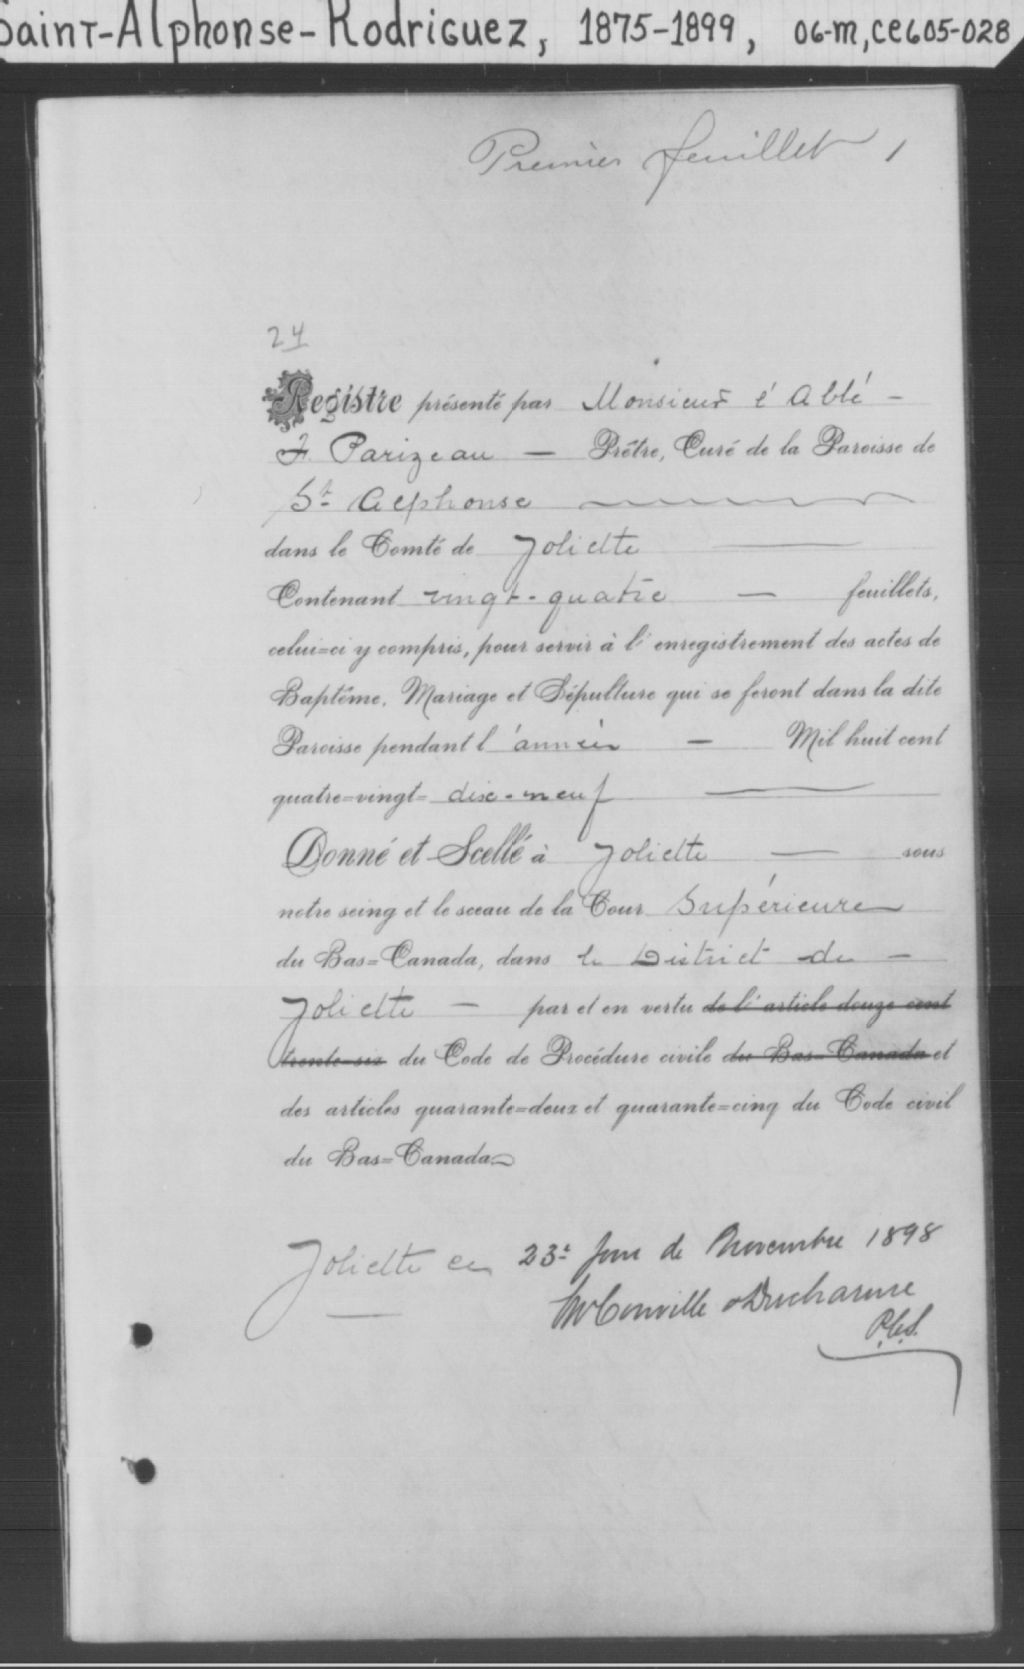 Saint-Alphonse-Rodriguez, 1875-1899, 06-M, CE605-028
Premier feuillet 1
24
Registre présenté par Monsieur l'Abbé -
F. Parizeau — Prêtre, Curé de la Paroisse de
St Alphonse
dans le Comté de Joliette
Contenant vingt-quatre — feuillets,
celui=ci y compris, pour servir à l'enregistrement des actes de
Baptême, Mariage et Sépulture qui se feront dans la dite
Paroisse pendant l'année — Mil huit cent
quatre=vingt= dix-neuf
Donné et Scellé à Joliette — sous
notre seing et le sceau de la Cour Supérieure
du Bas=Canada, dans le District de -
Joliette — par et en vertu de l'article douze cent
trente-six du Code de Procédure civile du Bas=Canada et
des articles quarante=deux et quarante=cinq du Code civil
du Bas=Canada
Joliette ce 23e jour de Novembre 1898
McConville & Ducharme
P.C.S.